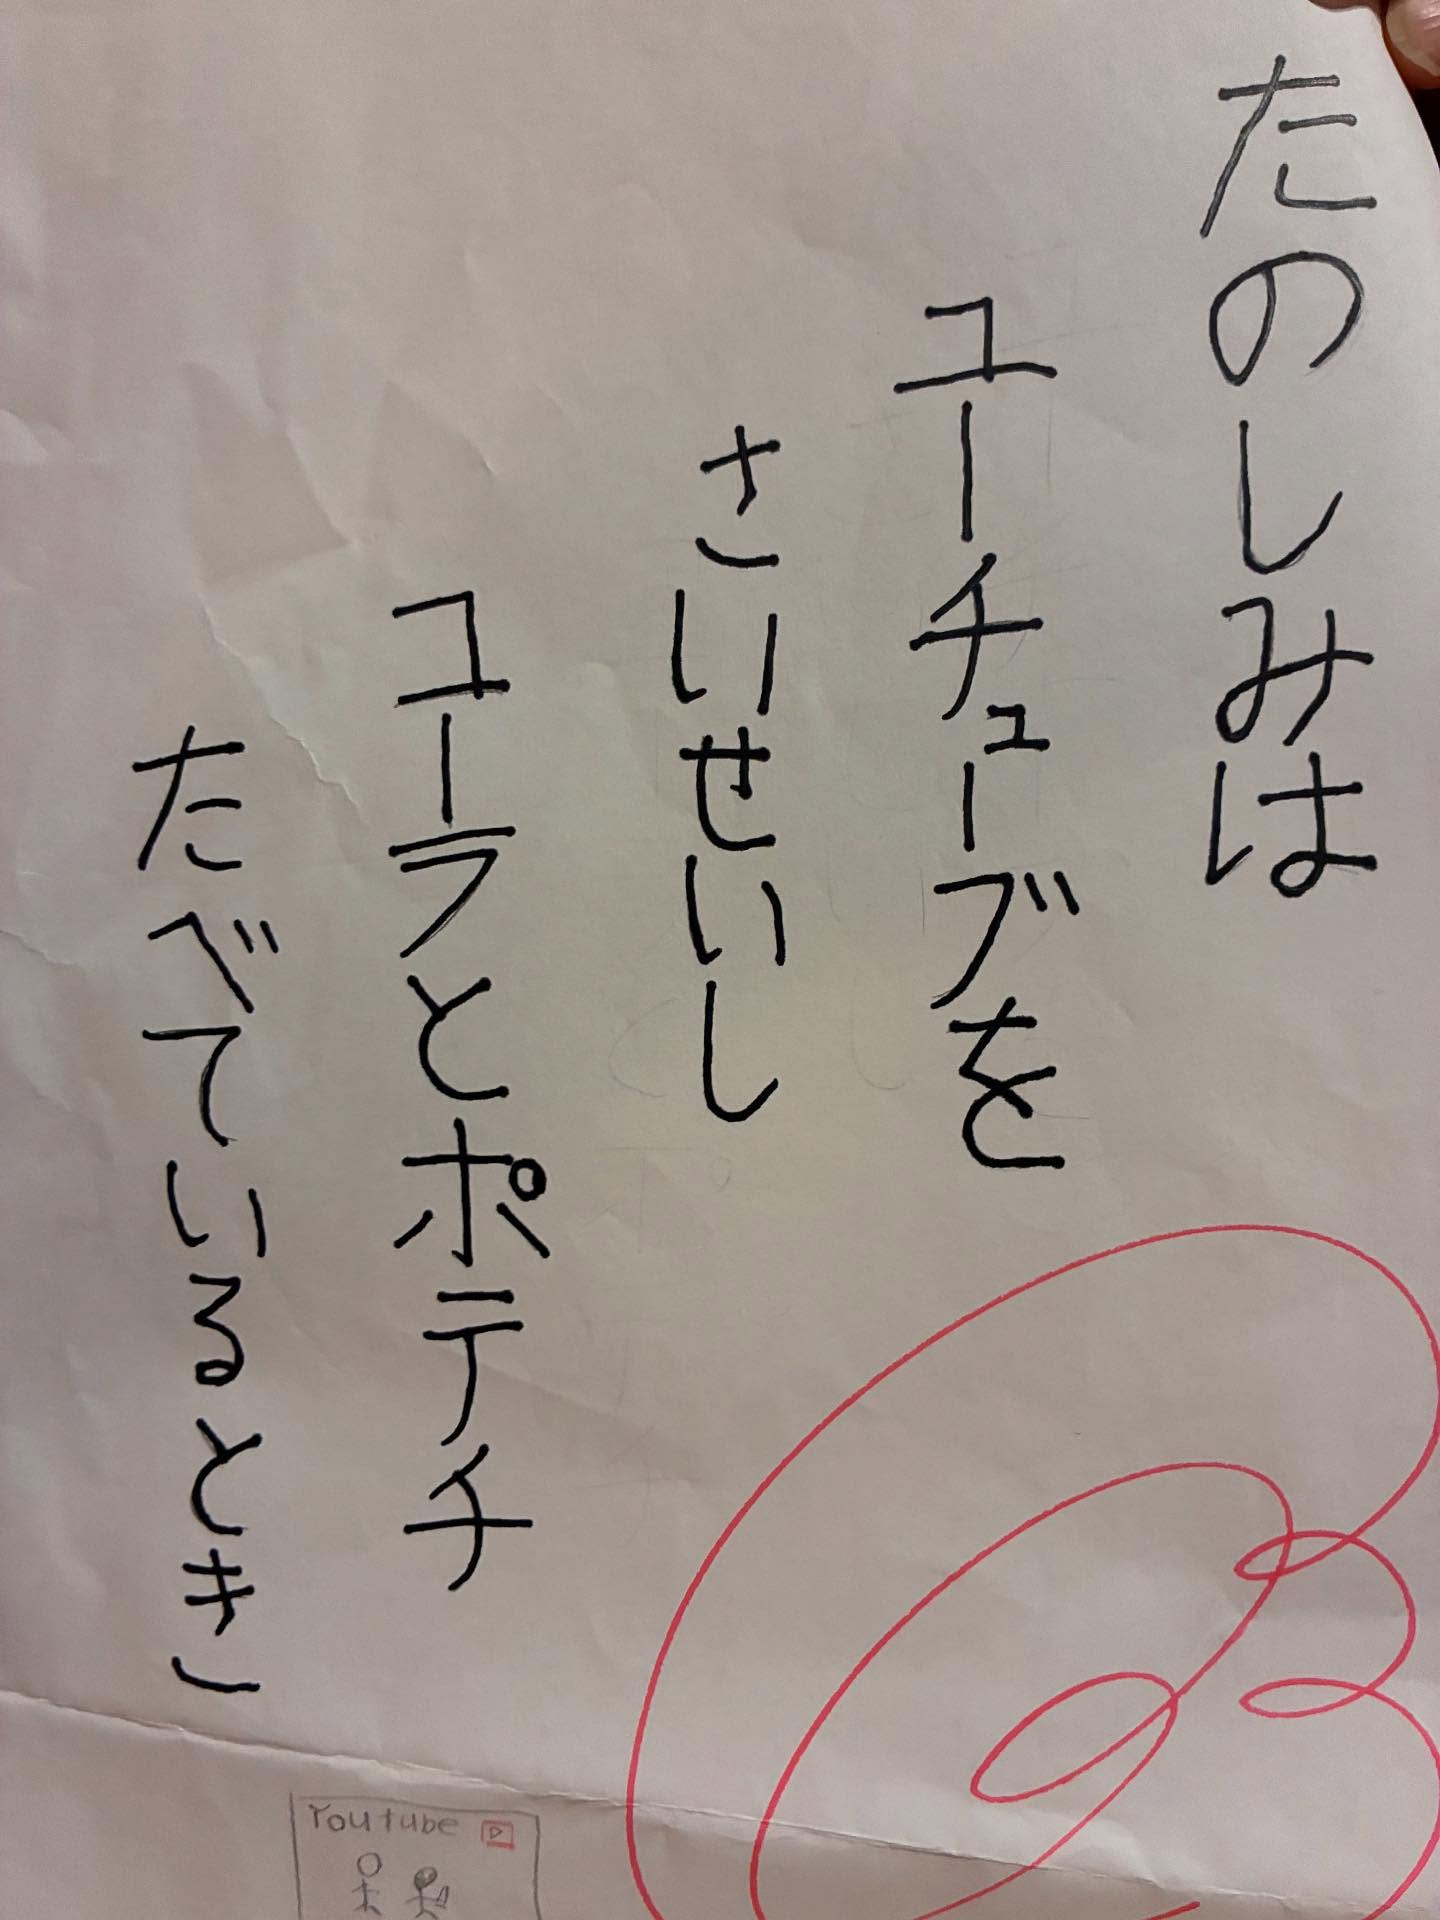 たのしみは
ユーチューブを
さいせいし
コーラとポテチ
たべているとき
Youtube